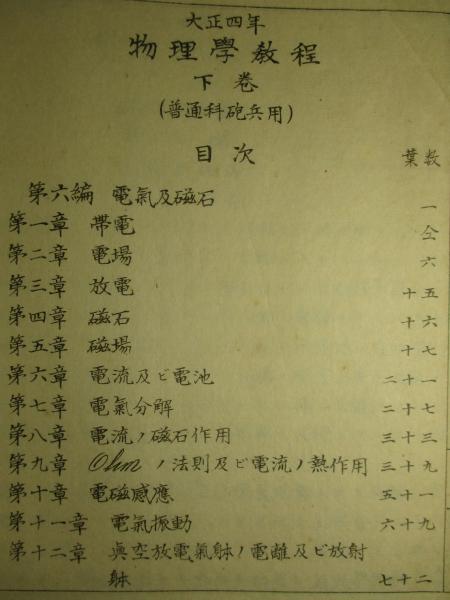 大正四年
物理學教程
下巻
(普通科砲兵用)
目次 葉数
第六編 電氣及磁石 一
第一章 帯電 仝
第二章 電場 六
第三章 放電 十五
第四章 磁石 十六
第五章 磁場 十七
第六章 電流及ビ電池 二十一
第七章 電氣分解 二十七
第八章 電流ノ磁石作用 三十三
第九章 Ohmノ法則及ビ電流ノ熱作用 三十九
第十章 電磁感應 五十一
第十一章 電氣振動 六十九
第十二章 眞空放電氣躰ノ電離及ビ放射
躰 七十二